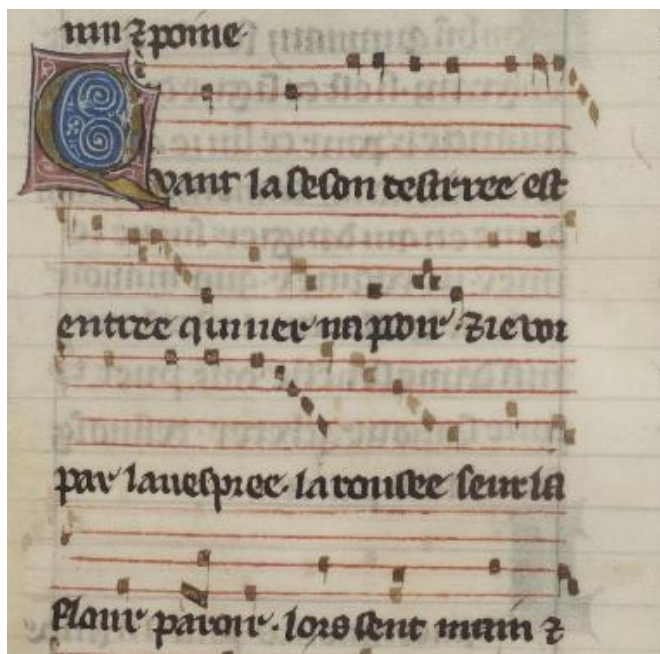 ⁊ poine·
Qvant la seson desirree est
entree quiuer na pooir · ⁊ ie voi
par lauespree · la rousee seur la
flour paroir · lors sent main ⁊